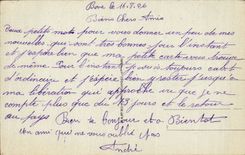 Bône le 11.8.26
Biens Chers Amis
Deux petits mots pour vous donner un peu de mes
nouvelles qui sont très bonnes pour l'instant
et j'espère bien que ma petite carte vous trouve
de même Pour l'instant je suis toujours
d'ordinaire et j'espère bien y rester jusqu'à
ma libération qui approche vu que je ne
compte plus que du 78 jours et le retour
au pays Bien le bonjour et a Bientot
Un ami qui ne vous oublie pas
André